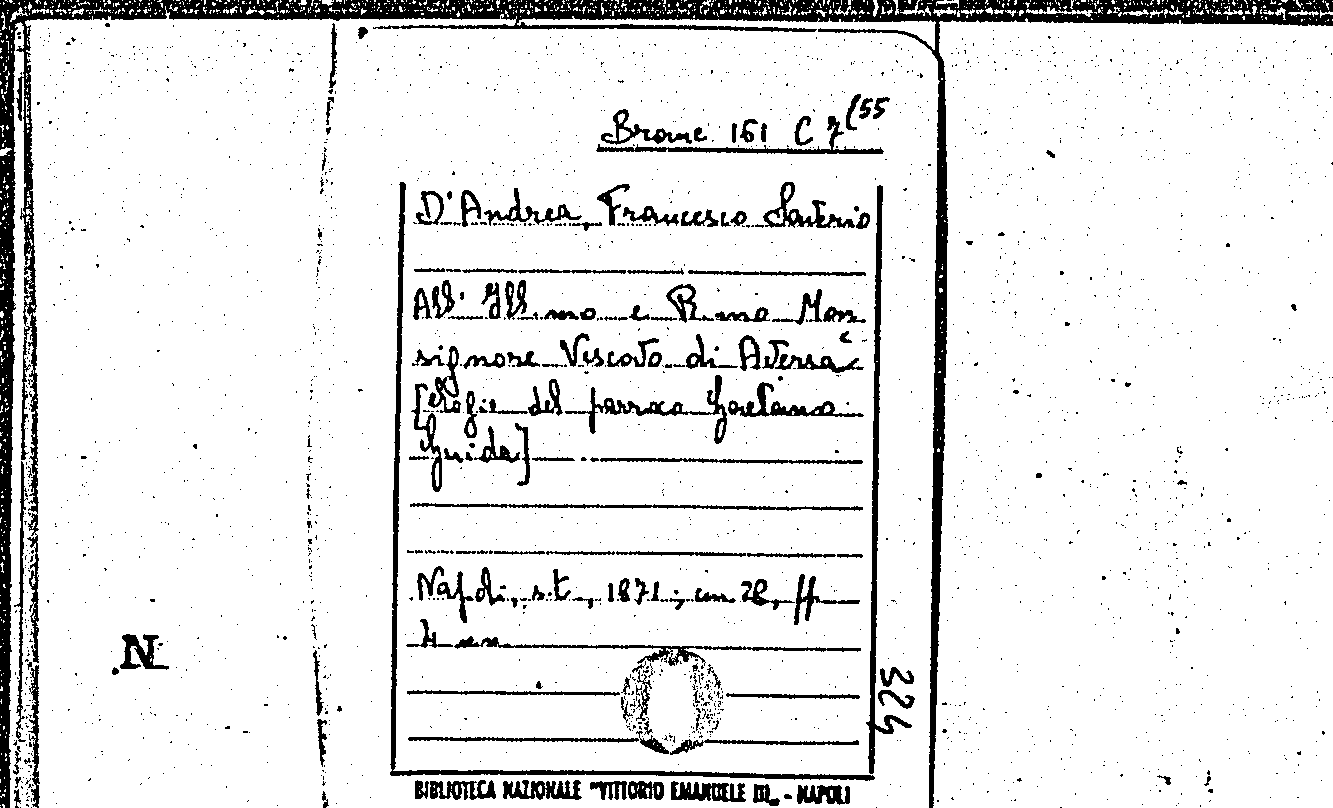 Brome 161 C 7(55
D'Andrea, Francesco Saverio
All' Ill.mo e R.mo Mon
signore Vescovo di Aversa
[elogio del parroco Gaetano
Guida]
Napoli, s.t., 1871; cm 28, ff
4 nn.
324
N
BIBLIOTECA NAZIONALE "VITTORIO EMANUELE III„ - NAPOLI